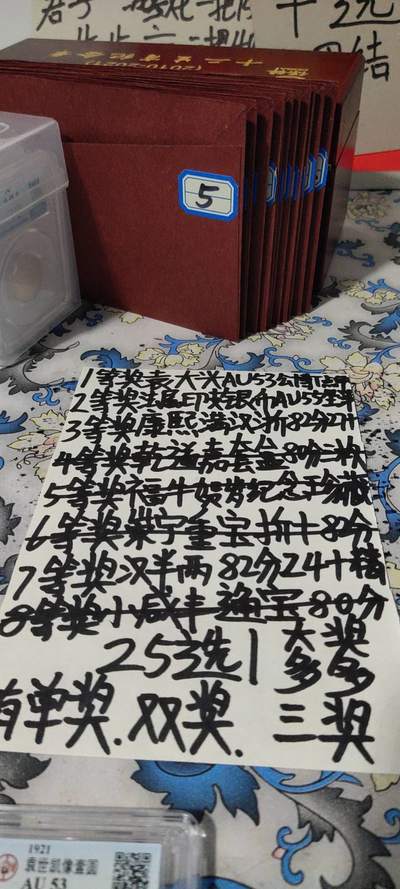 十选
(2010-2021)
5
1等奖袁大头AU53公博
2等奖法属印支银币AU55
3等奖康熙满汉浙82分
4等奖乾道嘉套盒80分
5等奖福牛贺岁纪念珍藏
6等奖崇宁重宝折十82分
7等奖汉半两82分24十精
8等奖小咸丰通宝80分
25选1大奖多多
有单奖.双奖.三奖
1921
袁世凯像壹圆
AU 53